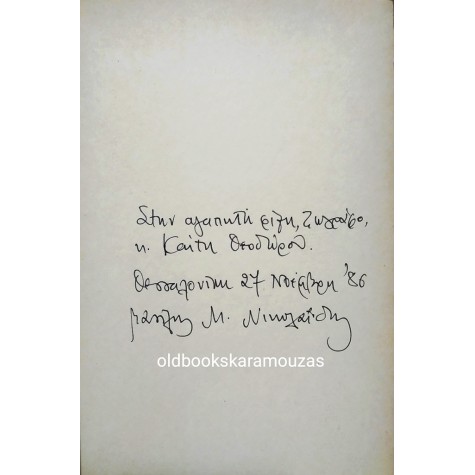 Στην αγαπητή φίλη, ζωγράφο,
κ. Καίτη Θεοδώρου.
Θεσσαλονίκη 27 Νοέμβρη '86
Μ. Νικολαΐδης
oldbookskaramouzas